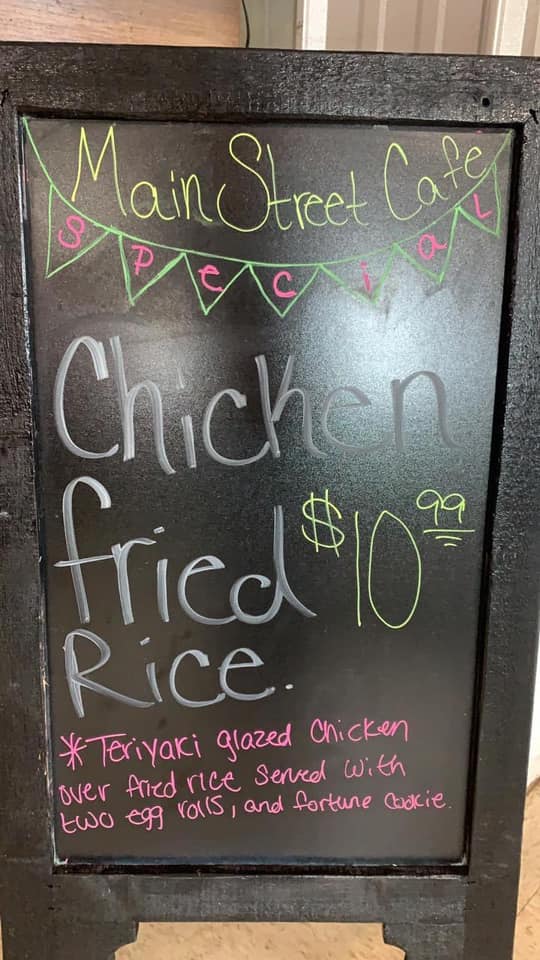 Main Street Cafe
SpeciaL
Chicken
fried $10 99
Rice.
* Teriyaki glazed Chicken
over fried rice Served with
two egg rolls, and fortune Cookie.